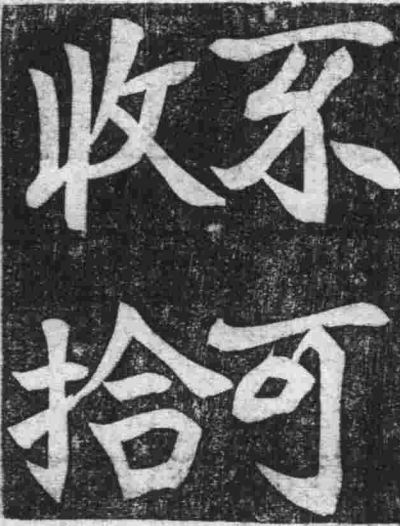 不可
收拾